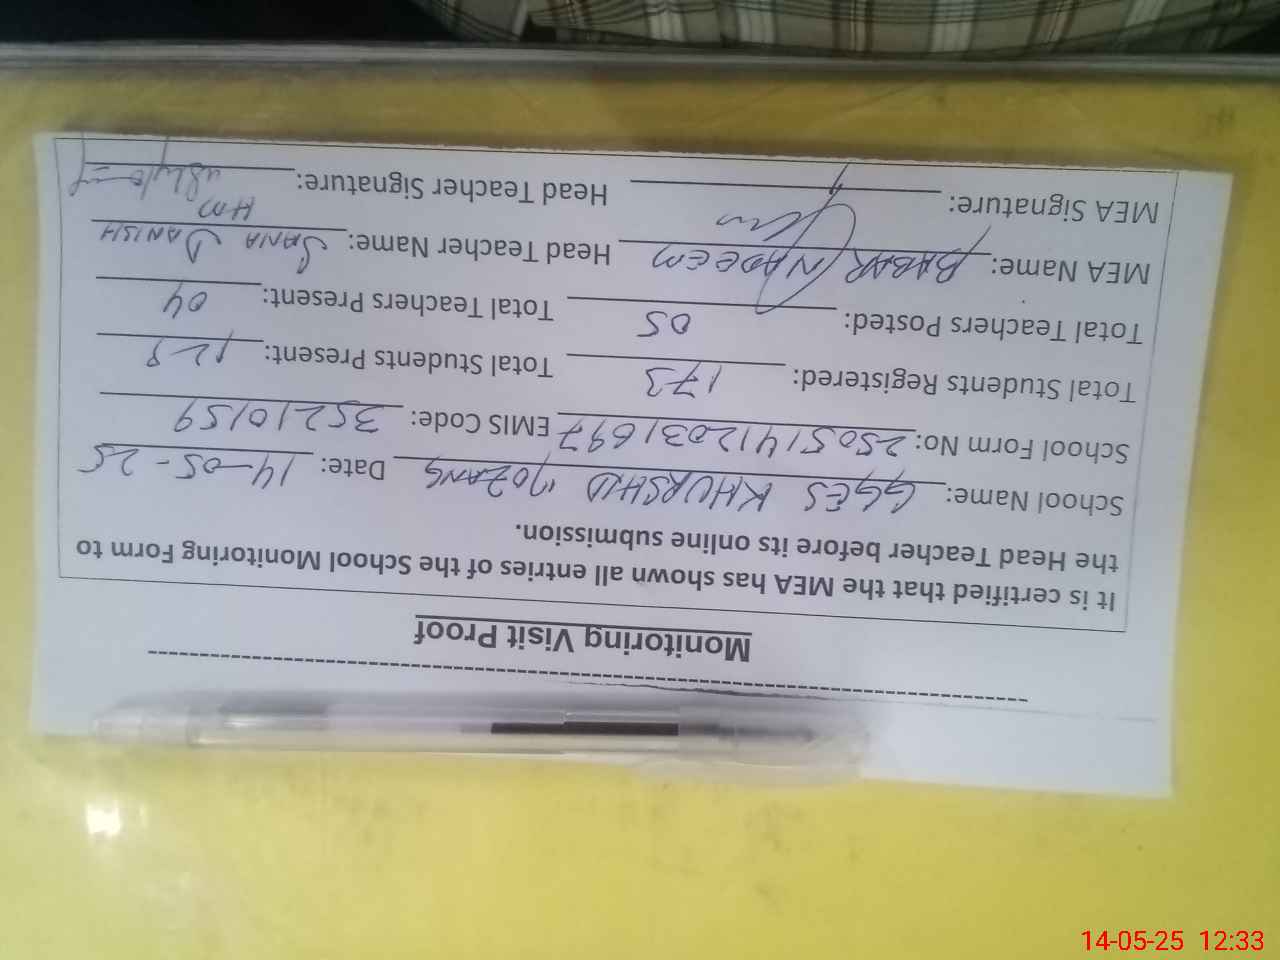 Monitoring Visit Proof
It is certified that the MEA has shown all entries of the School Monitoring Form to
the Head Teacher before its online submission.
School Name: GGES KHURSHID MOZANG Date: 14-05-25
School Form No: 25051412031697 EMIS Code: 35210159
Total Students Registered: 173 Total Students Present: 128
Total Teachers Posted: 05 Total Teachers Present: 04
MEA Name: BABAR NADEEM Head Teacher Name: SANA DANISH
HM
MEA Signature: Head Teacher Signature:
14-05-25 12:33